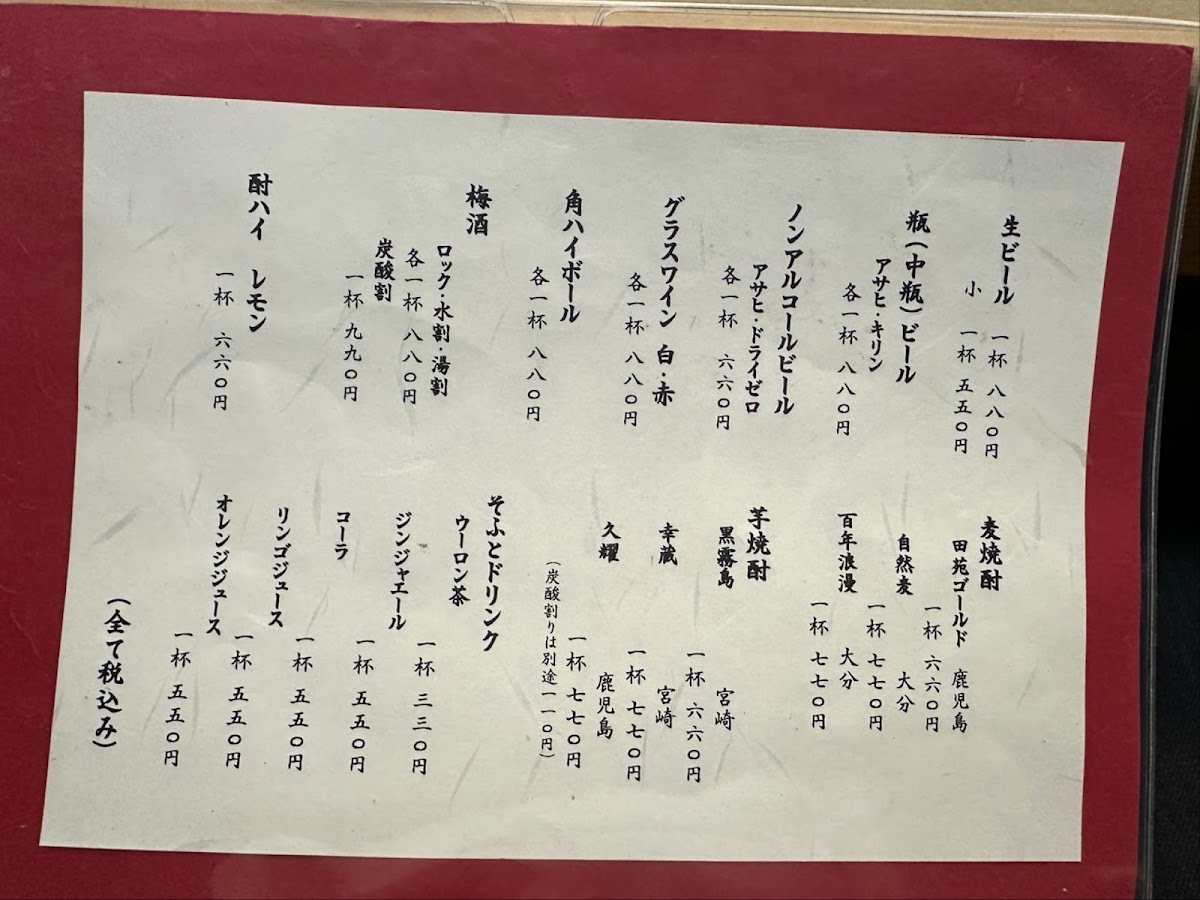 生ビール
一杯 八八〇円
小 一杯 五五〇円
瓶(中瓶)ビール
アサヒ・キリン
各一杯 八八〇円
ノンアルコールビール
アサヒ・ドライゼロ
各一杯 六六〇円
グラスワイン 白・赤
各一杯 八八〇円
角ハイボール
各一杯 八八〇円
梅酒
ロック・水割・湯割
各一杯 八八〇円
炭酸割
一杯 九九〇円
酎ハイ レモン
一杯 六六〇円
麦焼酎
田苑ゴールド 鹿児島
一杯 六六〇円
自然麦 大分
一杯 七七〇円
百年浪漫 大分
一杯 七七〇円
芋焼酎
黒霧島 宮崎
一杯 六六〇円
幸蔵 宮崎
一杯 七七〇円
久耀 鹿児島
一杯 七七〇円
(炭酸割りは別途一一〇円)
そふとドリンク
ウーロン茶
一杯 三三〇円
ジンジャエール
一杯 五五〇円
コーラ
一杯 五五〇円
リンゴジュース
一杯 五五〇円
オレンジジュース
一杯 五五〇円
(全て税込み)